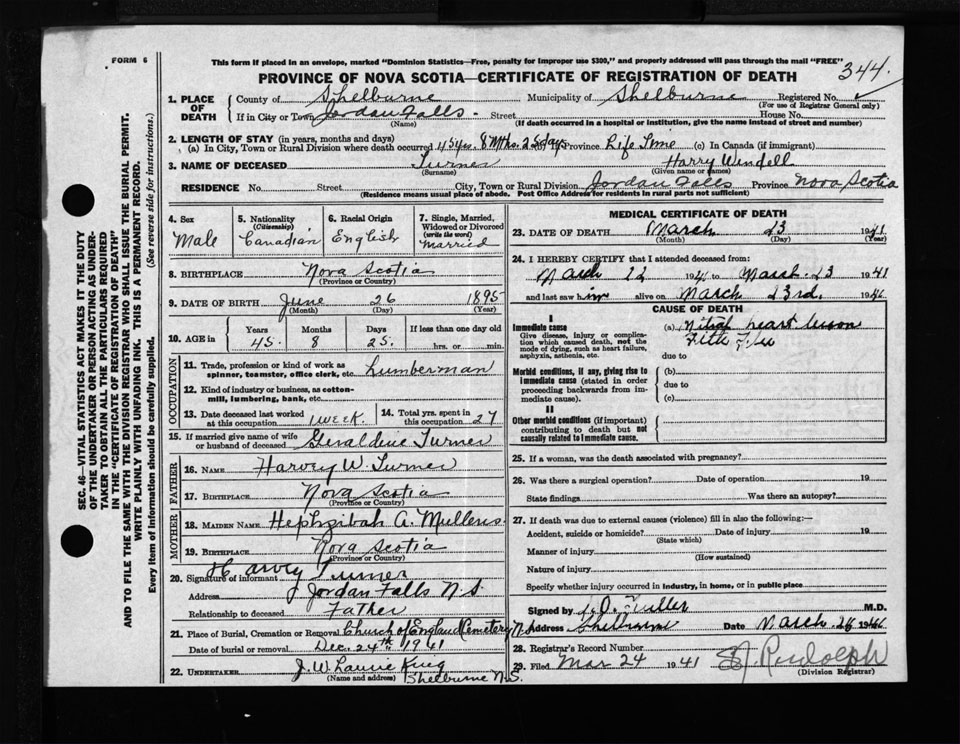 FORM 6
This form if placed in an envelope, marked "Dominion Statistics—Free, penalty for improper use $300," and properly addressed will pass through the mail "FREE"
PROVINCE OF NOVA SCOTIA—CERTIFICATE OF REGISTRATION OF DEATH
344.
SEC. 46—VITAL STATISTICS ACT MAKES IT THE DUTY
OF THE UNDERTAKER OR PERSON ACTING AS UNDER-
TAKER TO OBTAIN ALL THE PARTICULARS REQUIRED
IN THE "CERTIFICATE OF REGISTRATION OF DEATH"
AND TO FILE THE SAME WITH THE DIVISION REGISTRAR, WHO SHALL ISSUE THE BURIAL PERMIT.
WRITE PLAINLY WITH UNFADING INK. THIS IS A PERMANENT RECORD.
Every item of Information should be carefully supplied. (See reverse side for instructions.)
1. PLACE OF DEATH County of Shelburne Municipality of Shelburne Registered No.
(For use of Registrar General only)
If in City or Town Jordan Falls. Street House No.
(Name) (If death occurred in a hospital or institution, give the name instead of street and number)
2. LENGTH OF STAY (in years, months and days)
(a) In City, Town or Rural Division where death occurred 45 yrs. 8 Mths. 25 days (b) Province Life Time (c) In Canada (if immigrant)
3. NAME OF DECEASED Turner Harry Windell
(Surname) (Given name or names)
RESIDENCE No. Street City, Town or Rural Division Jordan Falls Province Nova Scotia
(Residence means usual place of abode. Post Office Address for residents in rural parts not sufficient)
4. Sex
Male
5. Nationality
(Citizenship)
Canadian
6. Racial Origin
English
7. Single, Married,
Widowed or Divorced
(write the word)
Married
8. BIRTHPLACE Nova Scotia
(Province or Country)
9. DATE OF BIRTH June 26 1895
(Month) (Day) (Year)
10. AGE in Years Months Days If less than one day old
45. 8 25. hrs. or min.
OCCUPATION
11. Trade, profession or kind of work as
spinner, teamster, office clerk, etc. Lumberman
12. Kind of industry or business, as cotton-
mill, lumbering, bank, etc.
13. Date deceased last worked
at this occupation 1 week
14. Total yrs. spent in
this occupation 27
15. If married give name of wife
or husband of deceased Geraldine Turner
FATHER
16. NAME Harvey W. Turner
17. BIRTHPLACE Nova Scotia
(Province or Country)
MOTHER
18. MAIDEN NAME Hephzibah A. Mullens.
19. BIRTHPLACE Nova Scotia
(Province or Country)
20. Signature of informant Harvey Turner
Address Jordan Falls N.S.
Relationship to deceased Father
21. Place of Burial, Cremation or Removal Church of England Cemetery N.S.
Date of burial or removal Dec. 24th 1941
22. UNDERTAKER J. W. Laurie King
(Name and address) Shelburne N.S.
MEDICAL CERTIFICATE OF DEATH
23. DATE OF DEATH March 23 1941
(Month) (Day) (Year)
24. I HEREBY CERTIFY that I attended deceased from:
March 22 1941 to March 23 1941
and last saw him alive on March 23rd, 1941
CAUSE OF DEATH
I
Immediate cause
Give disease, injury or complica-
tion which caused death, not the
mode of dying, such as heart failure,
asphyxia, asthenia, etc.
(a) Mitral heart lesion
due to
Morbid conditions, if any, giving rise to
immediate cause (stated in order
proceeding backwards from im-
mediate cause).
(b)
due to
(c)
II
Other morbid conditions (if important)
contributing to death but not
causally related to immediate cause.
25. If a woman, was the death associated with pregnancy?
26. Was there a surgical operation? Date of operation 19
State findings Was there an autopsy?
27. If death was due to external causes (violence) fill in also the following:—
Accident, suicide or homicide? Date of injury 19
(State which)
Manner of injury
(How sustained)
Nature of injury
Specify whether injury occurred in industry, in home, or in public place
Signed by Fuller M.D.
Address Shelburne Date March 1941
28. Registrar's Record Number
29. Filed Mar 24 1941 Rudolph
(Division Registrar)